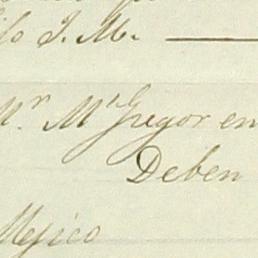 J. M. ———
Mr. McGregor en
Deben
Mejico